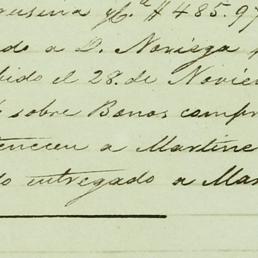 $485.97
do a D. Noriega
bido el 28. de Novie
sobre Bonos compr
tenecen a Martine
do entregado a Mar